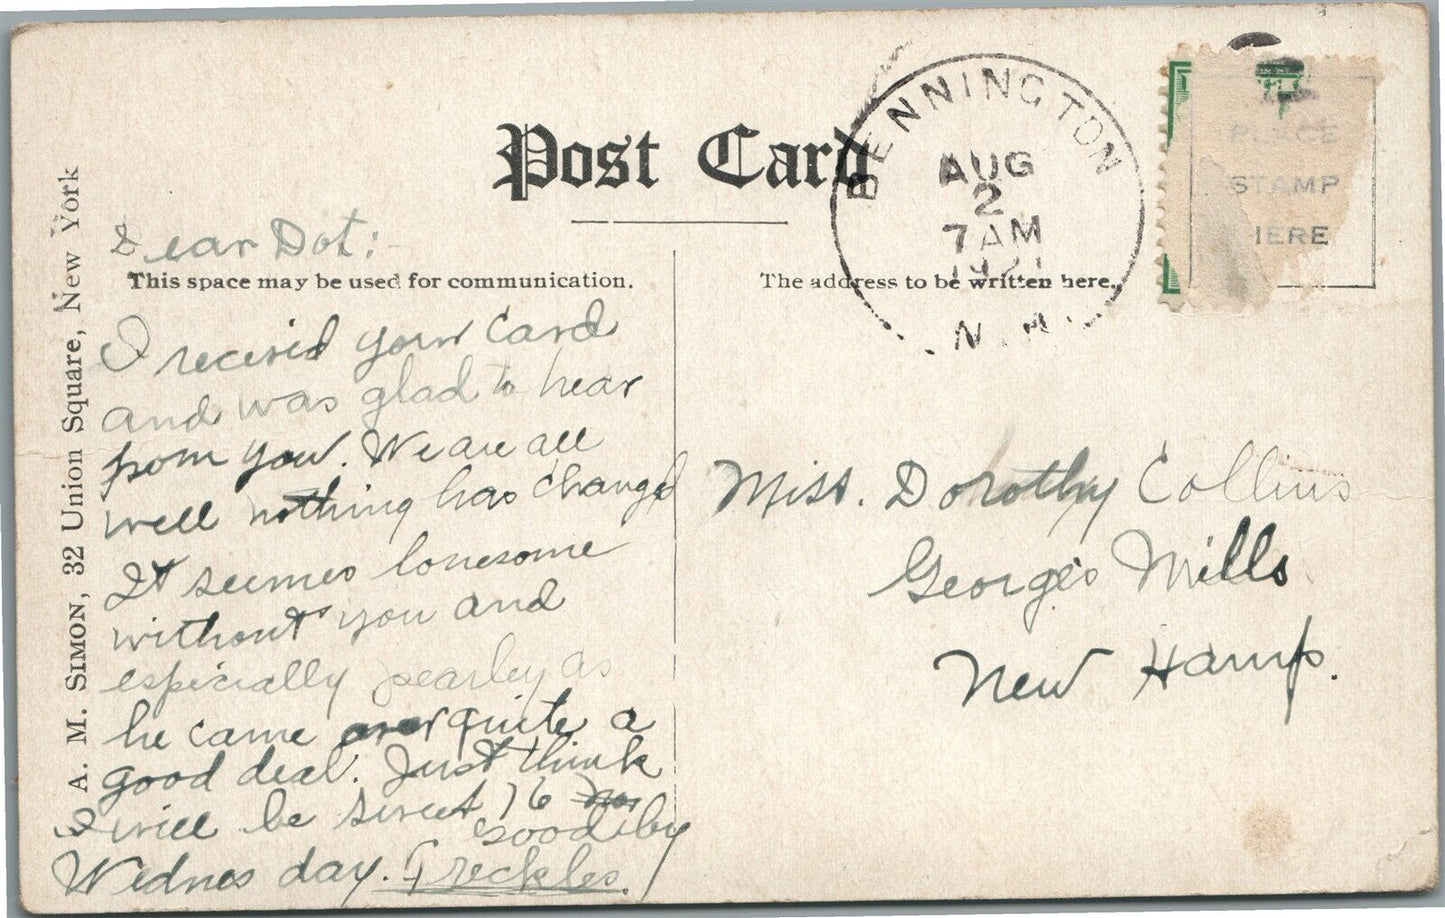 Post Card
BENNINGTON
AUG
2
7 AM
N.H.
PLACE
STAMP
HERE
This space may be used for communication.
The address to be written here.
A. M. SIMON, 32 Union Square, New York
Dear Dot:-
I receivid your card
and was glad to hear
from you. We are all
well nothing has changed
It seemes lonesome
without you and
especially pearley as
he came over quite a
good deal. Just think
I will be sweet 16
Wednes day. Good by
Freckles.
Miss. Dorothy Collins
George's Mills
New Hamp.